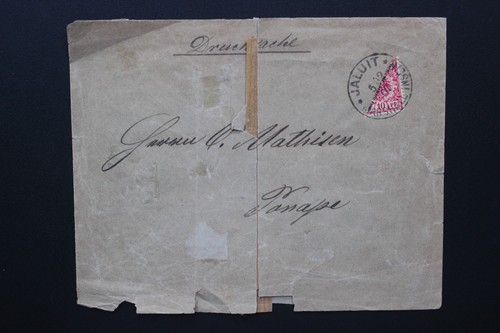 Drucksache
JALUIT * MARSHALL-
Herrn O. Mathisen
Ponape